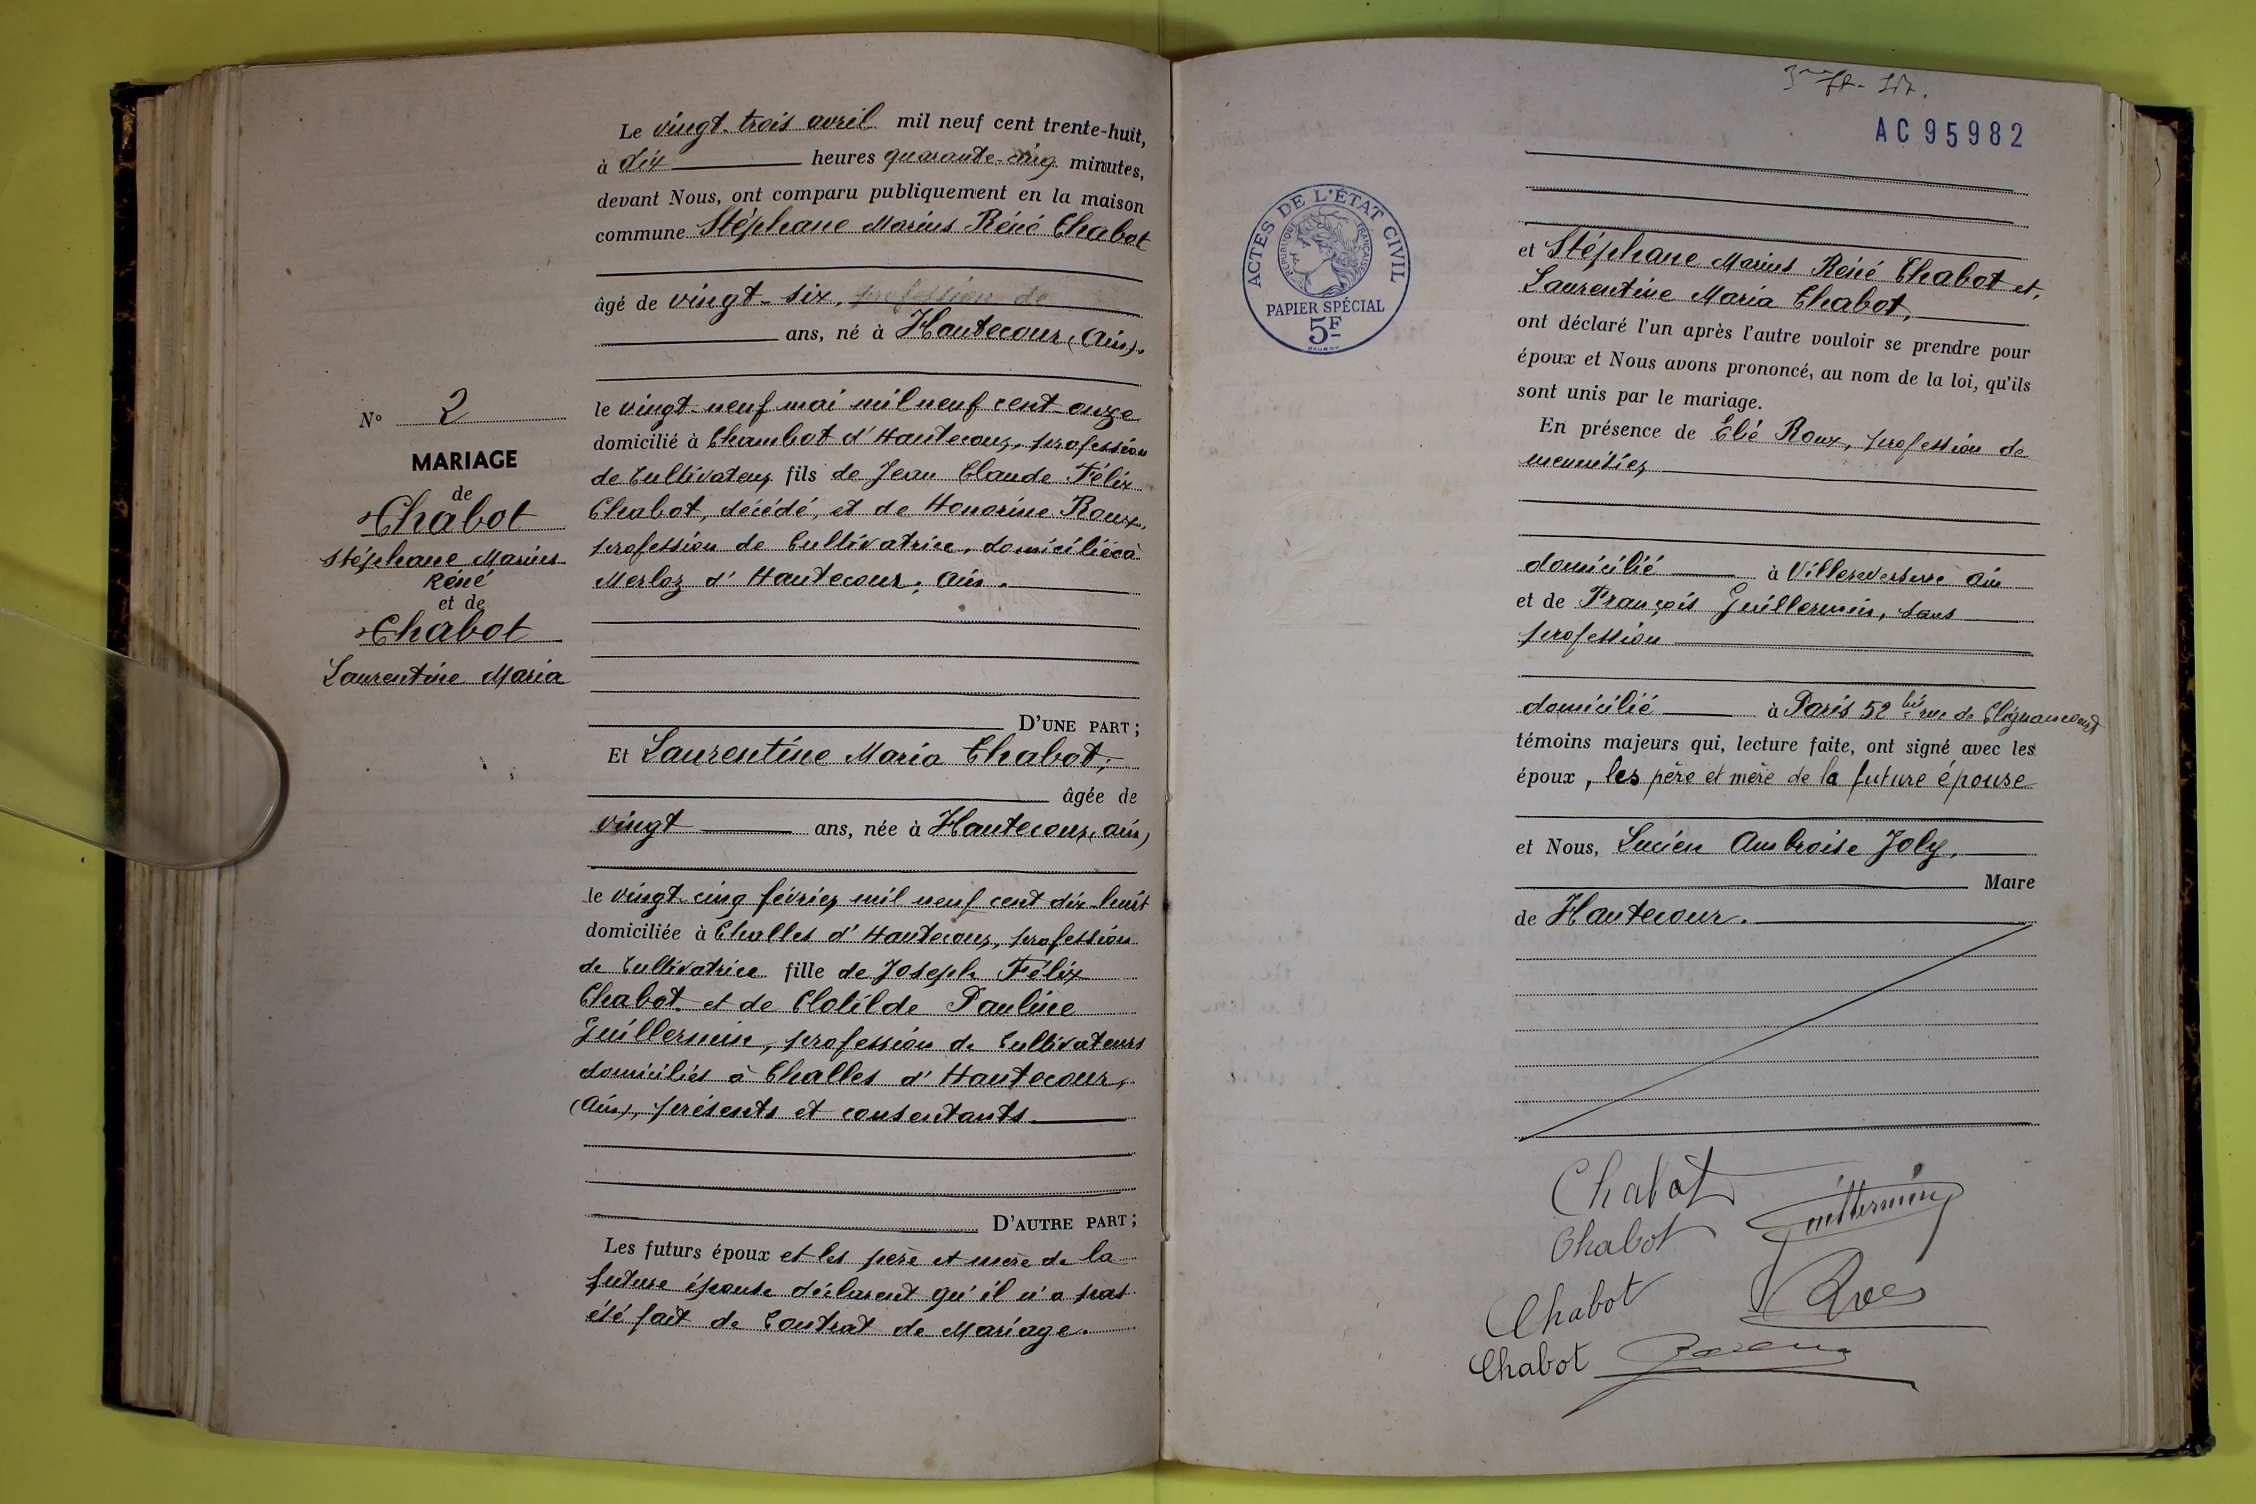 Le vingt-trois avril mil neuf cent trente-huit,
à dix heures quarante-cinq minutes,
devant Nous, ont comparu publiquement en la maison
commune Stéphane Marius Réné Chabot
âgé de vingt-six, profession de
ans, né à Hautecour (Ain).
le vingt-neuf mai mil neuf cent onze
domicilié à Chambot d'Hautecour, profession
de Cultivateur fils de Jean Claude Félix
Chabot, décédé, et de Honorine Roux,
profession de Cultivatrice, domiciliée à
Merloz d'Hautecour, Ain.
D'UNE PART ;
Et Laurentine Maria Chabot,
âgée de
vingt ans, née à Hautecour (Ain)
le vingt-cinq février mil neuf cent dix-huit
domiciliée à Challes d'Hautecour, profession
de Cultivatrice fille de Joseph Félix
Chabot et de Clotilde Pauline
Guillermin, profession de Cultivateurs
domiciliés à Challes d'Hautecour,
(Ain), présents et consentants
D'AUTRE PART ;
Les futurs époux et les père et mère de la
future épouse déclarent qu'il n'a pas
été fait de Contrat de Mariage.
N° 2
MARIAGE
de
Chabot
Stéphane Marius
Réné
et de
Chabot
Laurentine Maria
AC 95982
ACTES DE L'ÉTAT CIVIL
RÉPUBLIQUE FRANÇAISE
PAPIER SPÉCIAL
5F
et Stéphane Marius Réné Chabot et,
Laurentine Maria Chabot,
ont déclaré l'un après l'autre vouloir se prendre pour
époux et Nous avons prononcé, au nom de la loi, qu'ils
sont unis par le mariage.
En présence de Elié Roux, profession de
menuisier
domicilié à Villereversure Ain
et de François Guillermin, sans
profession
domicilié à Paris 52 bis rue de Clignancourt
témoins majeurs qui, lecture faite, ont signé avec les
époux, les père et mère de la future épouse
et Nous, Lucien Ambroise Joly,
Maire
de Hautecour.
Chabot
Guillermin
Chabot
Chabot
Chabot